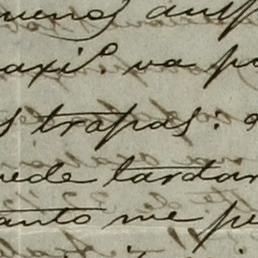 buenos ausp
axiº. va p
s trapas:
ede tardar
anto me pe